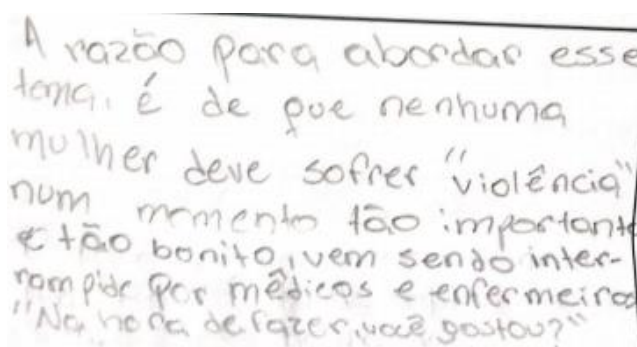 A razão para abordar esse
tema, é de que nenhuma
mulher deve sofrer "violência"
num momento tão importante
e tão bonito, vem sendo inter-
rompide por médicos e enfermeiros
"Na hora de fazer, você gostou?"